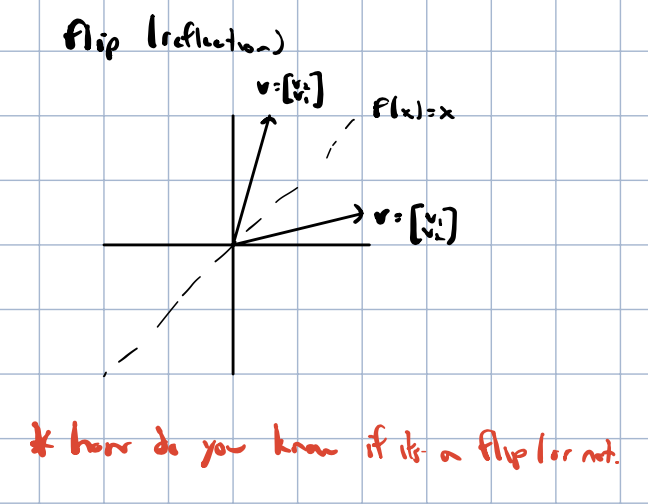 flip (reflection)
v=[v₂ v₁]
f(x)=x
v=[v₁ v₂]
* how do you know if its a flip or not.